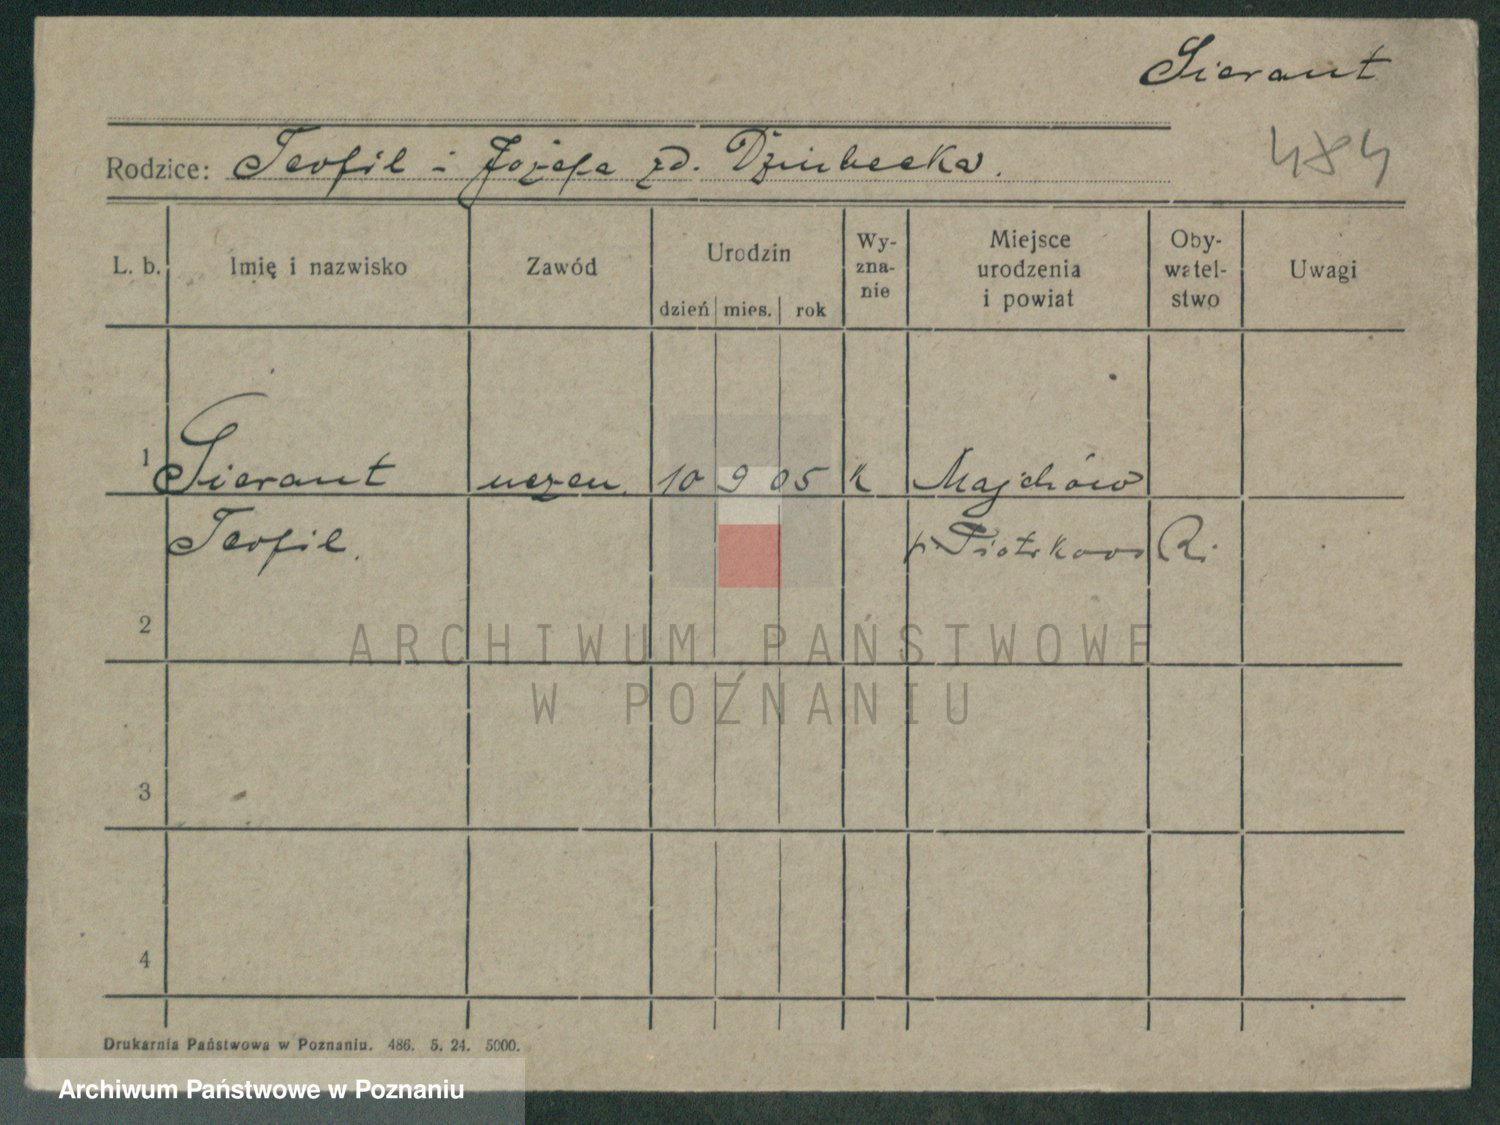 Sierant
Rodzice: Teofil i Józefa zd. Dziubecka.
484
L. b.
Imię i nazwisko
Zawód
Urodzin
dzień mies. rok
Wy-
zna-
nie
Miejsce
urodzenia
i powiat
Oby-
watel-
stwo
Uwagi
1 Sierant uczeń 10 9 05 k Majchów
Teofil. p. Piotrków R.
2
ARCHIWUM PAŃSTWOWE
W POZNANIU
3
4
Drukarnia Państwowa w Poznaniu. 486. 5. 24. 5000.
Archiwum Państwowe w Poznaniu